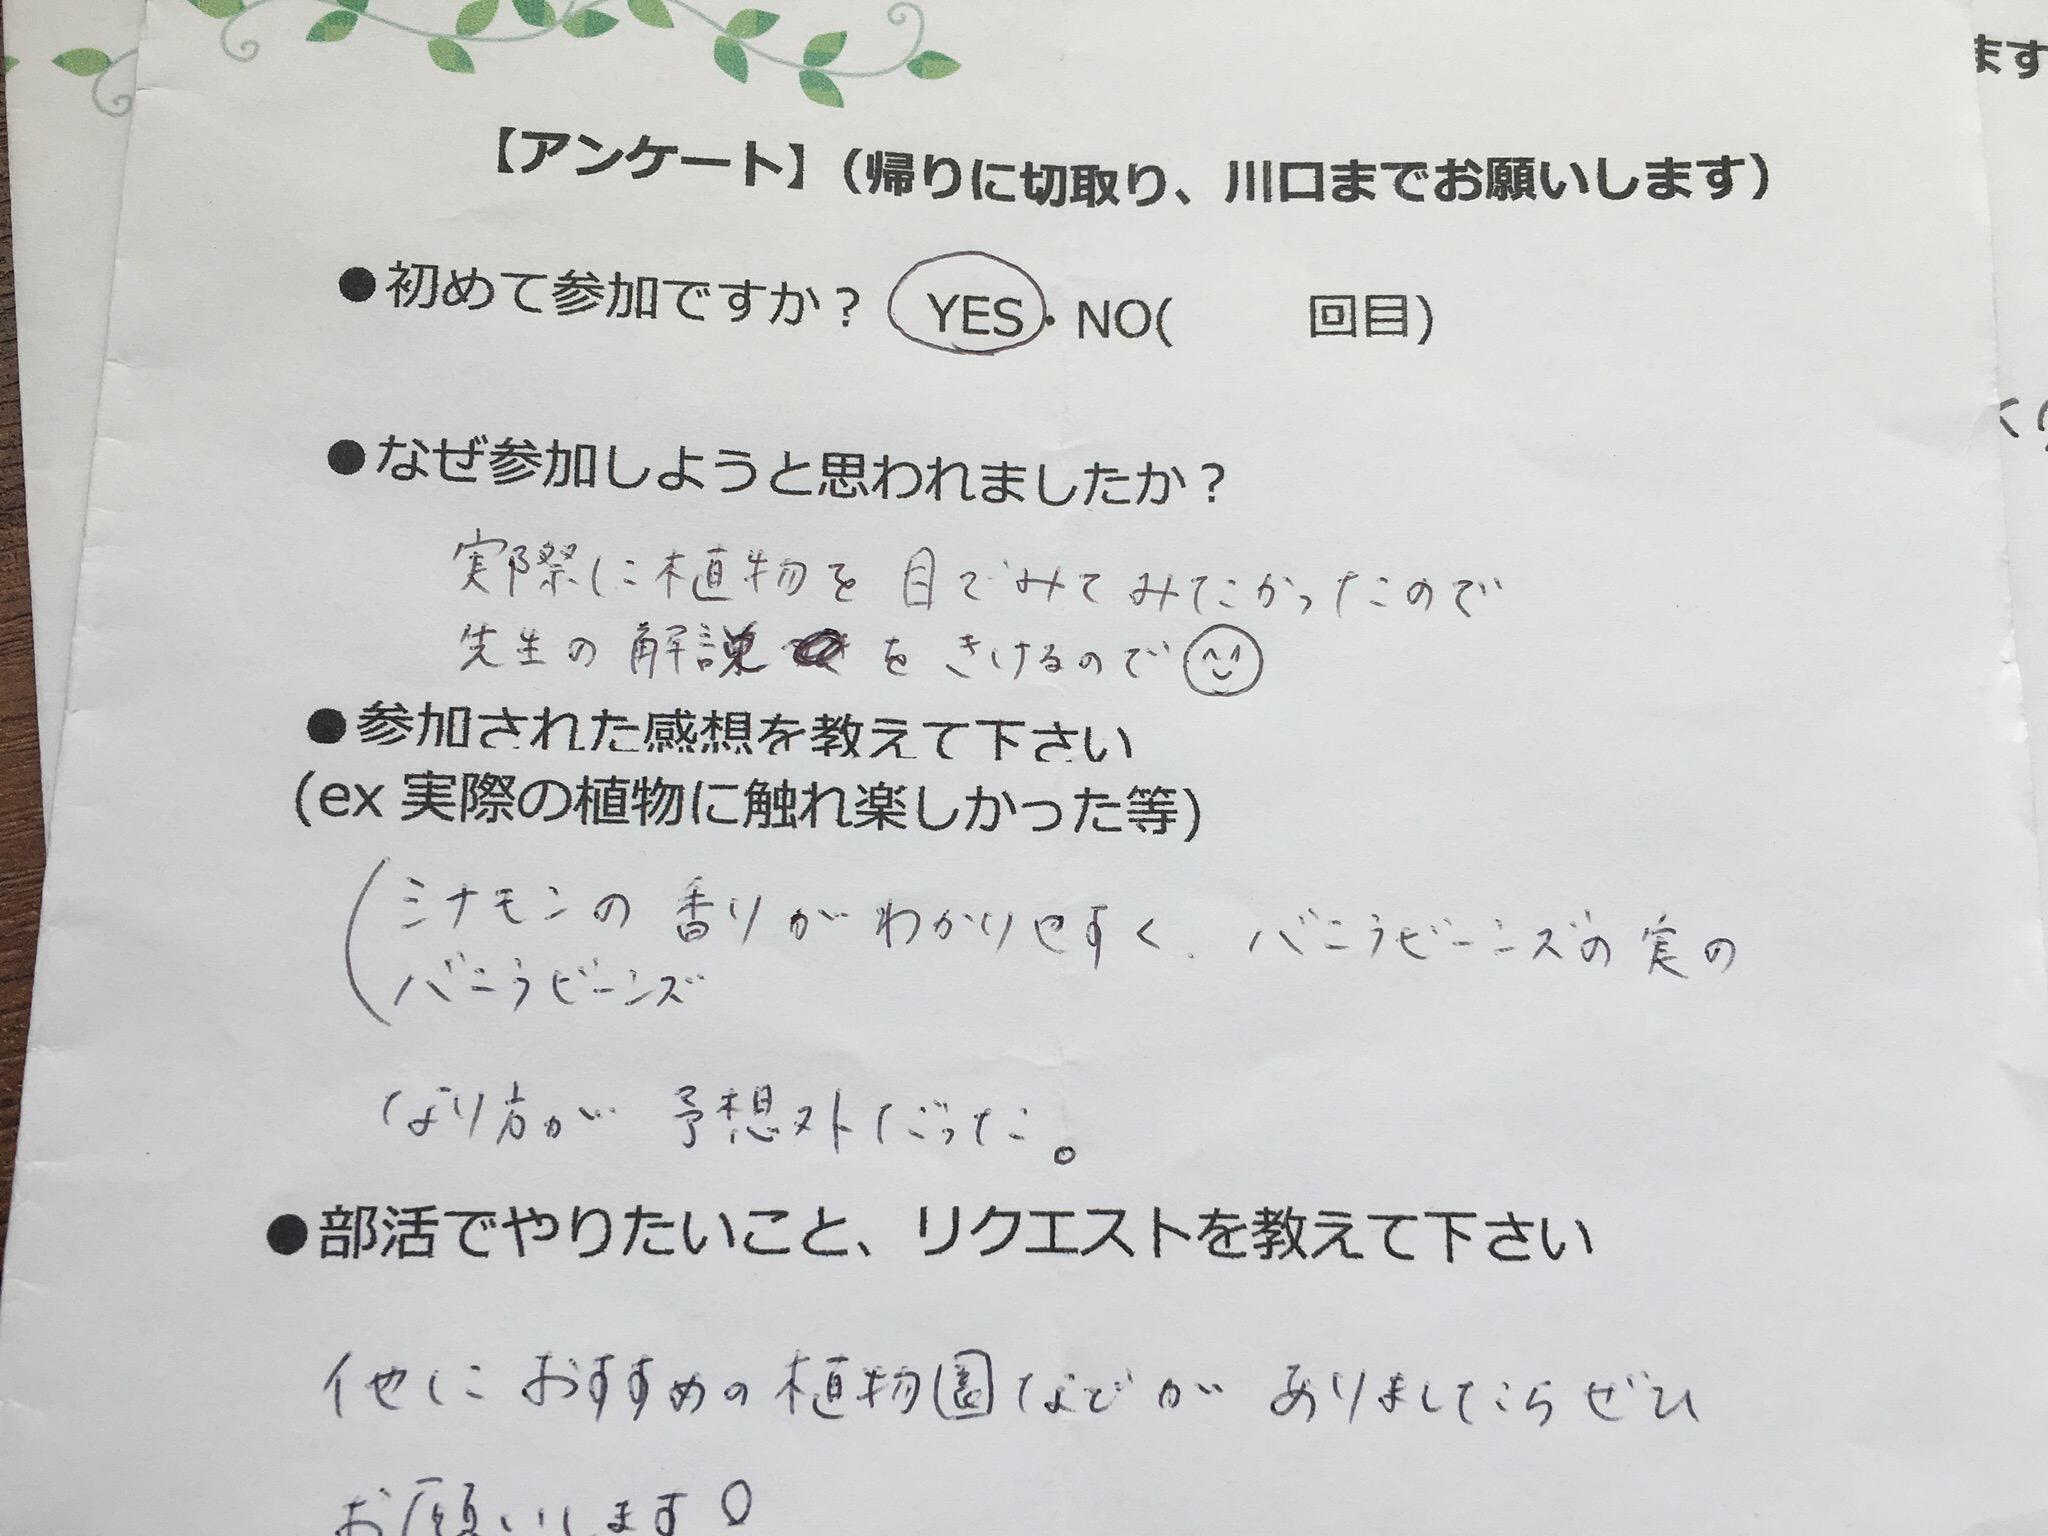 【アンケート】（帰りに切取り、川口までお願いします）
●初めて参加ですか？ YES・NO(　　回目)
●なぜ参加しようと思われましたか？
実際に植物を目でみてみたかったので
先生の解説をきけるので
●参加された感想を教えて下さい
(ex 実際の植物に触れ楽しかった等)
シナモンの香りがわかりやすく、バニラビーンズの実の
バニラビーンズ
なり方が予想外だった。
●部活でやりたいこと、リクエストを教えて下さい
他におすすめの植物園などがありましたらぜひ
お願いします
ます